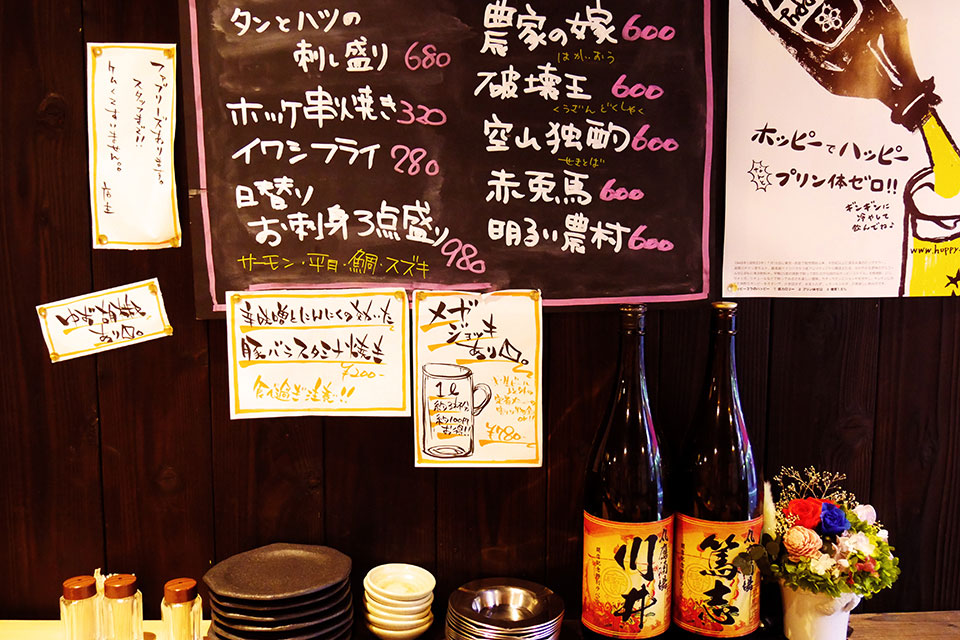 タンとハツの
刺し盛り 680
ホッケ串火焼き 320
イワシフライ 280
日替り
お刺身3点盛り 980
サーモン・平目・鯛・スズキ
農家の嫁 600
はかいおう
破壊王 600
くうざんどくしゃく
空山独酌 600
せきとば
赤兎馬 600
明るい農村 600
ファブリーズあります。
スタッフまで!!
ケムくてすいません。。
店主
ゆず胡椒
あり〼。
辛味噌とにんにくの効いた
豚バラスタミナ焼き
¥200-
食べ過ぎ注意!!
メガ
ジョッキ
あり〼。
1ℓ
約100円
お得!!
¥780-
ホッピーでハッピー
プリン体ゼロ!!
ギンギンに
冷やして
飲んでね♪
www.hoppy.
川井
篤志